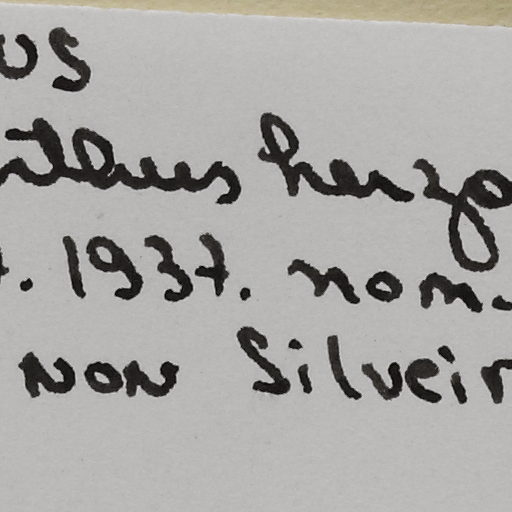 us
nthues herzo
. 1937. nom.
NON Silveir